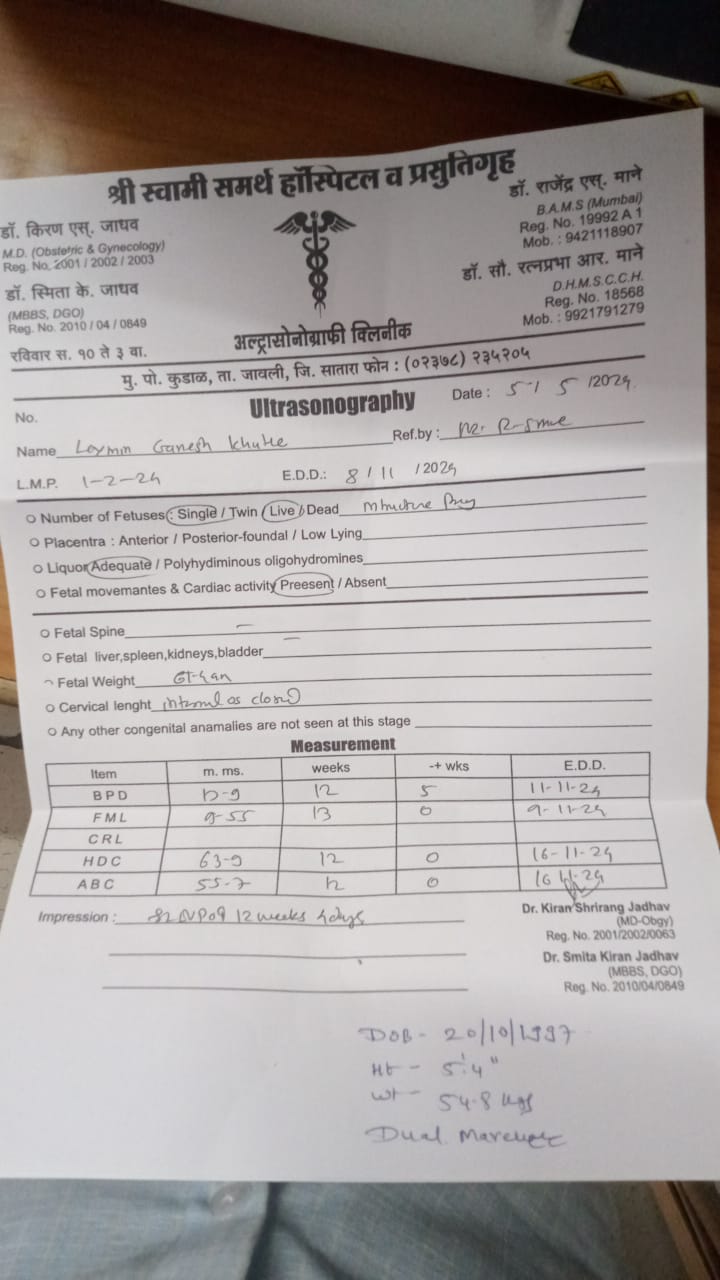 श्री स्वामी समर्थ हॉस्पिटल व प्रसुतिगृह
डॉ. किरण एस. जाधव
M.D. (Obstetric & Gynecology)
Reg. No. 2001 / 2002 / 2003
डॉ. स्मिता के. जाधव
(MBBS, DGO)
Reg. No. 2010 / 04 / 0849
रविवार स. १० ते ३ वा.
डॉ. राजेंद्र एस. माने
B.A.M.S (Mumbai)
Reg. No. 19992 A 1
Mob. : 9421118907
डॉ. सौ. रत्नप्रभा आर. माने
D.H.M.S.C.C.H.
Reg. No. 18568
Mob. : 9921791279
अल्ट्रासोनोग्राफी क्लिनीक
मु. पो. कुडाळ, ता. जावली, जि. सातारा फोन : (०२३७८) २३४२०५
No.
Ultrasonography
Date : 5 / 5 /2024
Name Ganesh Ref.by :
L.M.P. 1-2-24 E.D.D.: 8 / 11 / 2024
Number of Fetuses : Single / Twin (Live / Dead
Placentra : Anterior / Posterior-foundal / Low Lying
Liquor Adequate / Polyhydiminous oligohydromines
Fetal movemantes & Cardiac activity Preesent / Absent
Fetal Spine –
Fetal liver,spleen,kidneys,bladder –
Fetal Weight
Cervical lenght internal os closed
Any other congenital anamalies are not seen at this stage
Measurement
Item m. ms. weeks -+ wks E.D.D.
BPD 12 5 11-11-24
FML 9-55 13 0 9-11-24
CRL
HDC 63-9 12 0 16-11-24
ABC 55-7 12 0 16-11-24
Impression : 12 weeks 4 days
Dr. Kiran Shrirang Jadhav
(MD-Obgy)
Reg. No. 2001/2002/0063
Dr. Smita Kiran Jadhav
(MBBS, DGO)
Reg. No. 2010/04/0849
DOB - 20/10/1997
Ht - 5'4"
Wt - 54.8 kgs
Dual